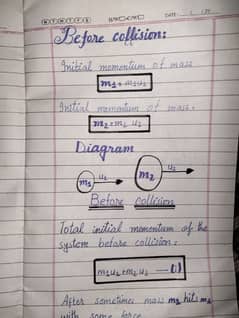 M T W T F S
DATE:
Before collision:
Initial momentum of mass
m1 = m1u1
Initial momentum of mass.
m2 = m2 u2
Diagram
m1 u1 m2 u2
Before collision
Total initial momentum of the
system before collision:
m1u1+m2 u2 — (i)
After sometimes mass m1 hits m2
with some force